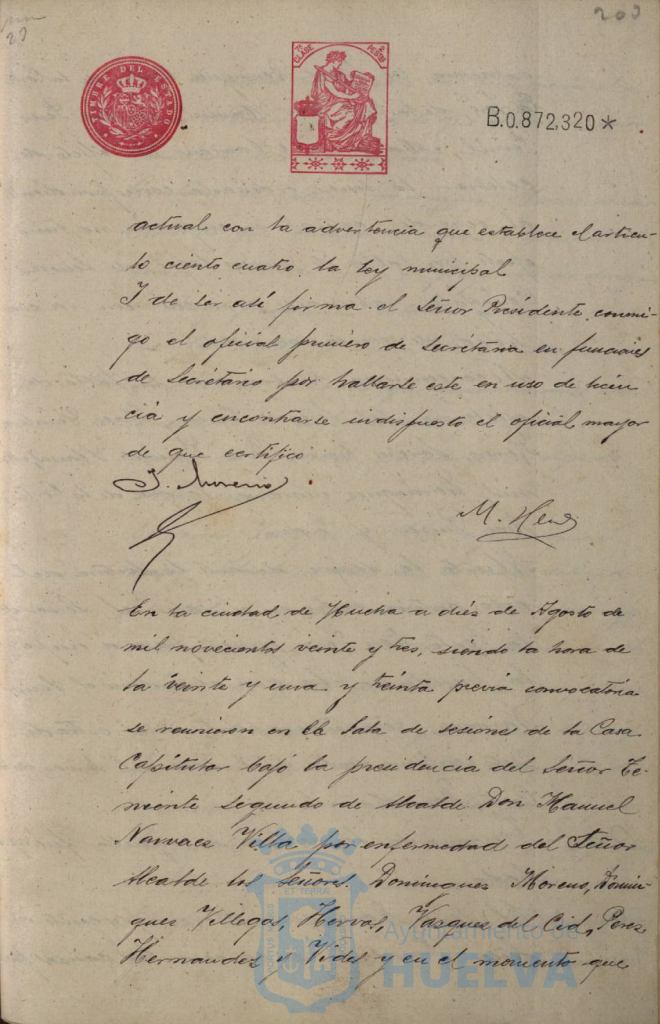 203
TIMBRE DEL ESTADO
7ª CLASE 2 PESETAS
B.0.872,320*
actual con la advertencia que establece el articu-
lo ciento cuatro la ley municipal
Y de ser así firma el Señor Presidente conmi-
go el oficial primero de Secretaria en funciones
de Secretario por hallarse este en uso de licen
cia y encontrarse indispuesto el oficial mayor
de que certifico
J. Moreno
M.
En la ciudad de Huelva a diez de Agosto de
mil novecientos veinte y tres, siendo la hora de
la veinte y una y treinta previa convocatoria
se reunieron en la Sala de sesiones de la Casa
Capitular bajo la presidencia del Señor Te-
niente segundo de Alcalde Don Manuel
Narvaez Villa por enfermedad del Señor
Alcalde los Señores. Dominguez Moreno, Domin-
guez Villegas, Hervas, Vazquez del Cid, Perez
Hernandez y Vides y en el momento que
Ayuntamiento de
HUELVA